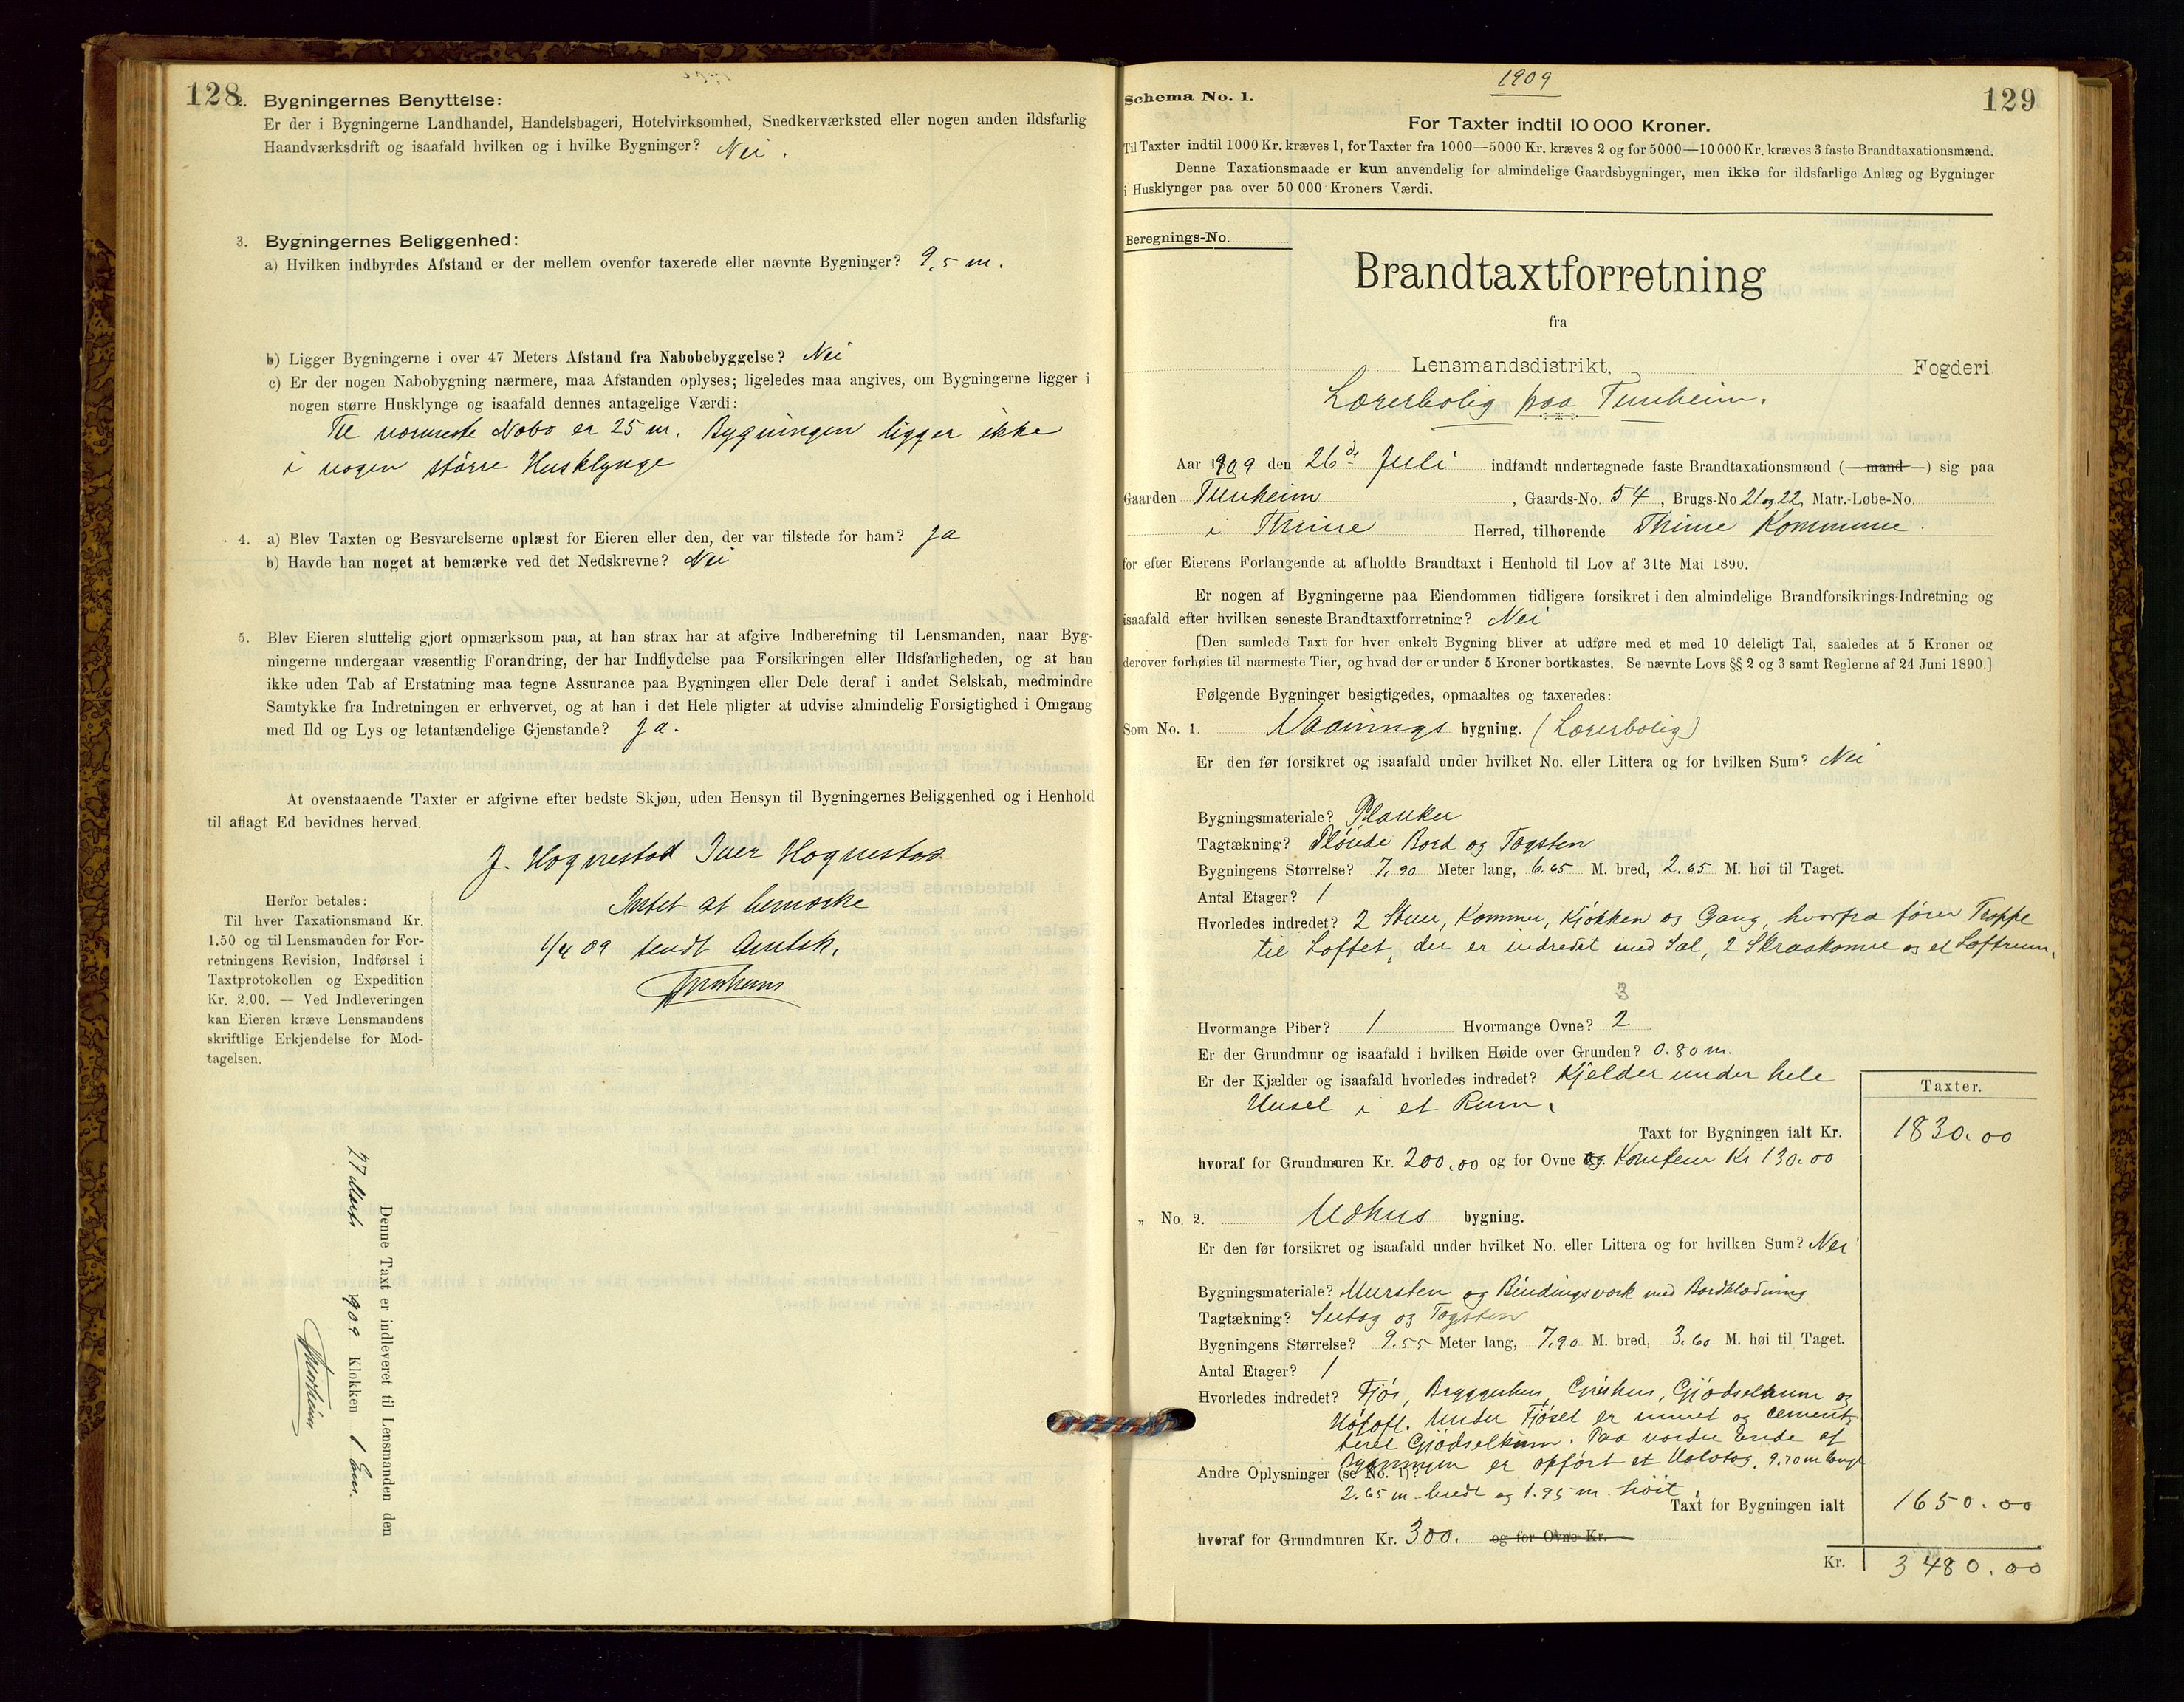 128
2. Bygningernes Benyttelse:
Er der i Bygningerne Landhandel, Handelsbageri, Hotelvirksomhed, Snedkerværksted eller nogen anden ildsfarlig
Haandværksdrift og isaafald hvilken og i hvilke Bygninger? Nei.
3. Bygningernes Beliggenhed:
a) Hvilken indbyrdes Afstand er der mellem ovenfor taxerede eller nævnte Bygninger? 9,5 m.
b) Ligger Bygningerne i over 47 Meters Afstand fra Nabobebyggelse? Nei
c) Er der nogen Nabobygning nærmere, maa Afstanden oplyses; ligeledes maa angives, om Bygningerne ligger i
nogen større Husklynge og isaafald dennes antagelige Værdi:
Til nærmeste Nabo er 25 m. Bygningen ligger ikke
i nogen større Husklynge
4. a) Blev Taxten og Besvarelserne oplæst for Eieren eller den, der var tilstede for ham? ja
b) Havde han noget at bemærke ved det Nedskrevne? Nei
5. Blev Eieren sluttelig gjort opmærksom paa, at han strax har at afgive Indberetning til Lensmanden, naar Byg-
ningerne undergaar væsentlig Forandring, der har Indflydelse paa Forsikringen eller Ildsfarligheden, og at han
ikke uden Tab af Erstatning maa tegne Assurance paa Bygningen eller Dele deraf i andet Selskab, medmindre
Samtykke fra Indretningen er erhvervet, og at han i det Hele pligter at udvise almindelig Forsigtighed i Omgang
med Ild og Lys og letantændelige Gjenstande? ja.
At ovenstaaende Taxter er afgivne efter bedste Skjøn, uden Hensyn til Bygningernes Beliggenhed og i Henhold
til aflagt Ed bevidnes herved.
J. Hognestad Iver Hognestad
Intet at bemærke
1/4 09 sendt Amtsk.
Herfor betales:
Til hver Taxationsmand Kr.
1.50 og til Lensmanden for For-
retningens Revision, Indførsel i
Taxtprotokollen og Expedition
Kr. 2.00. — Ved Indleveringen
kan Eieren kræve Lensmandens
skriftlige Erkjendelse for Mod-
tagelsen.
Denne Taxt er indleveret til Lensmanden den
27 Marts 1909 Klokken 1 Em.
1909
Schema No. 1.
129
For Taxter indtil 10 000 Kroner.
Til Taxter indtil 1000 Kr. kræves 1, for Taxter fra 1000—5000 Kr. kræves 2 og for 5000—10 000 Kr. kræves 3 faste Brandtaxationsmænd.
Denne Taxationsmaade er kun anvendelig for almindelige Gaardsbygninger, men ikke for ildsfarlige Anlæg og Bygninger
i Husklynger paa over 50 000 Kroners Værdi.
Beregnings-No.
Brandtaxtforretning
fra
Lensmandsdistrikt, Fogderi
Lærerbolig paa Tunheim.
Aar 1909 den 26de Juli indfandt undertegnede faste Brandtaxationsmænd (—mand—) sig paa
Gaarden Tunheim, Gaards-No. 54, Brugs-No 21 og 22, Matr.-Løbe-No.
i Thime Herred, tilhørende Thime Kommune.
for efter Eierens Forlangende at afholde Brandtaxt i Henhold til Lov af 31te Mai 1890.
Er nogen af Bygningerne paa Eiendommen tidligere forsikret i den almindelige Brandforsikrings-Indretning og
isaafald efter hvilken seneste Brandtaxtforretning? Nei
[Den samlede Taxt for hver enkelt Bygning bliver at udføre med et med 10 deleligt Tal, saaledes at 5 Kroner og
derover forhøies til nærmeste Tier, og hvad der er under 5 Kroner bortkastes. Se nævnte Lovs §§ 2 og 3 samt Reglerne af 24 Juni 1890.]
Følgende Bygninger besigtigedes, opmaaltes og taxeredes:
Som No. 1. Vaanings bygning. (Lærerbolig)
Er den før forsikret og isaafald under hvilket No. eller Littera og for hvilken Sum? Nei
Bygningsmateriale? Planker
Tagtækning? Pløiede Bord og Tagsten
Bygningens Størrelse? 7,90 Meter lang, 6.65 M. bred, 2.65 M. høi til Taget.
Antal Etager? 1
Hvorledes indredet? 2 Stuer, Kammer, Kjøkken og Gang, hvorfra fører Trappe
til Loftet, der er indredet med Sal, 2 Skraakamre og et Loftrum.
3
Hvormange Piber? 1 Hvormange Ovne? 2
Er der Grundmur og isaafald i hvilken Høide over Grunden? 0.80 m.
Er der Kjælder og isaafald hvorledes indredet? Kjelder under hele
Huset i et Rum.
Taxter.
Taxt for Bygningen ialt Kr. 1830.00
hvoraf for Grundmuren Kr. 200.00 og for Ovne og Komfeur Kr 130.00
„ No. 2. Udhus bygning.
Er den før forsikret og isaafald under hvilket No. eller Littera og for hvilken Sum? Nei
Bygningsmateriale? Mursten og Bindingsværk med Bordklædning
Tagtækning? Sutag og Tagsten
Bygningens Størrelse? 9.55 Meter lang, 7,90 M. bred, 3.60 M. høi til Taget.
Antal Etager? 1
Hvorledes indredet? Fjøs, Bryggerhus, Grishus, Gjødselrum og
Høloft. Under Fjøset er muret og cement-
teret Gjødselrum. Paa nordre Ende af
Bygningen er opført et Halvtag, 9.70 m langt
Andre Oplysninger (se No. 1)?
2.65 m bredt og 1.95 m høit.
Taxt for Bygningen ialt 1650.00
hvoraf for Grundmuren Kr. 300. og for Ovne Kr.
Kr. 3480.00